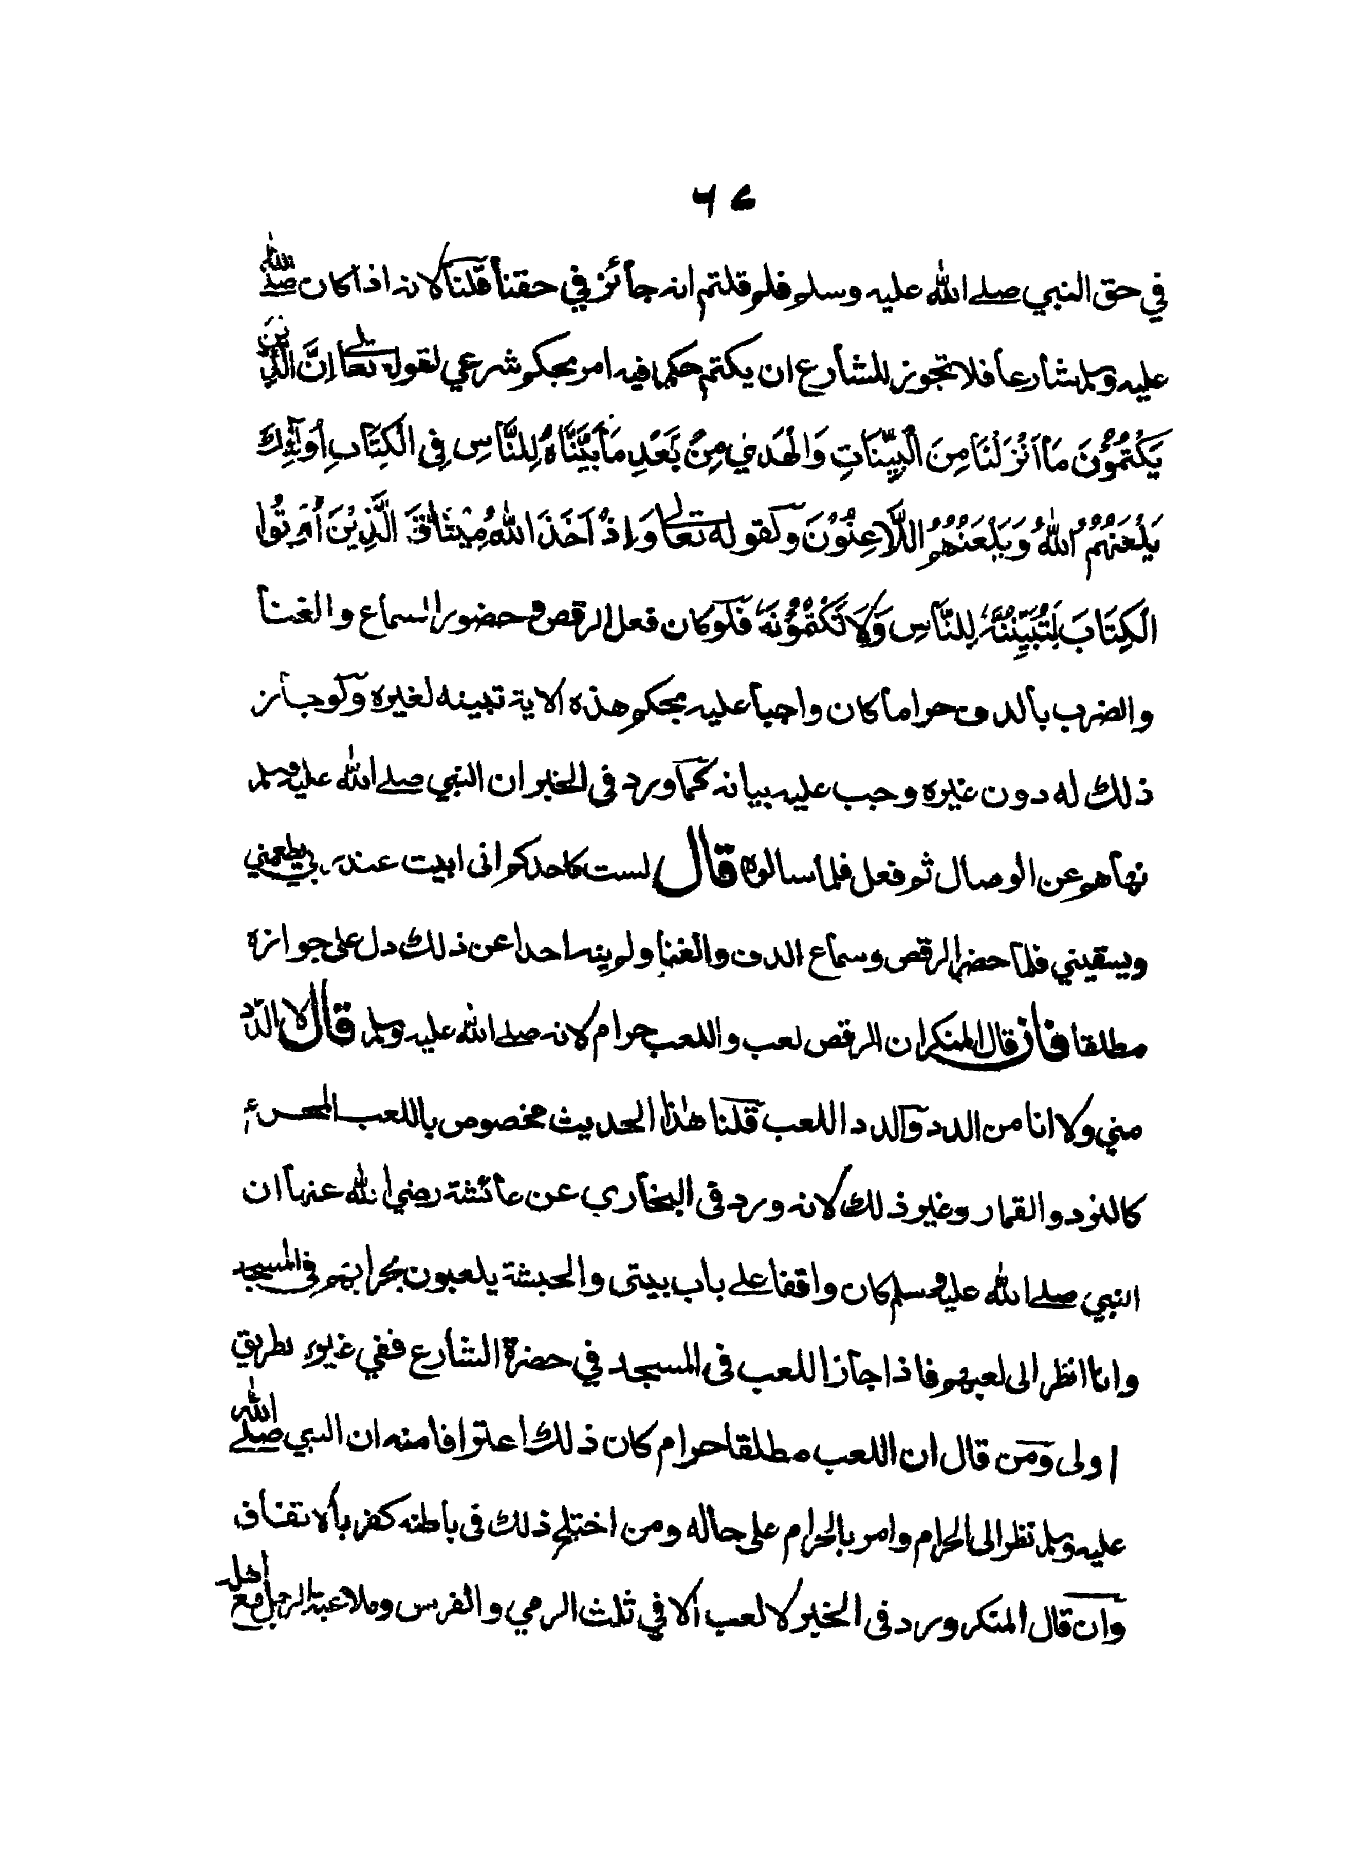 ٦٤
في حق النبي صلے الله عليه وسلم فلم قلتم انه جائز في حقنا قلنا لانه اذا كان صلے الله
عليه وسلم شارعا فلا تجوز للشارع ان يكتم حكما فيه امر بحكم شرعي لقوله تعالے إِنَّ الَّذِينَ
يَكْتُمُوْنَ مَا أَنْزَلْنَا مِنَ الْبَيِّنَاتِ وَالْهُدٰى مِنْ بَعْدِ مَا بَيَّنَّاهُ لِلنَّاسِ فِي الْكِتَابِ أُولٰئِكَ
يَلْعَنُهُمُ اللهُ وَيَلْعَنُهُمُ اللَّاعِنُوْنَ وكقوله تعالے وَإِذْ أَخَذَ اللهُ مِيْثَاقَ الَّذِيْنَ أُوْتُوا
الْكِتَابَ لَتُبَيِّنُنَّهٗ لِلنَّاسِ وَلَا تَكْتُمُوْنَهٗ فلو كان فعل الرقص وحضور السماع والغنا
والضرب بالدف حراما كان واجبا عليه بحكم هذه الاية تبينه لغيره ولو جائز
ذلك له دون غيره وجب عليه بيانه كما ورد في الخبر ان النبي صلے الله عليه وسلم
نهاهم عن الوصال ثم فعل فلما سالوه قال لست كاحدكم اني ابيت عند ربي يطعمني
ويسقيني فلما حضر الرقص وسماع الدف والغنا ولم ينه احدا عن ذلك دل على جوازه
مطلقا فان قال المنكر ان الرقص لعب واللعب حرام لانه صلے الله عليه وسلم قال لا الدد
مني ولا انا من الدد والدد اللعب قلنا هذا الحديث مخصوص باللعب المحرم
كالنرد والقمار وغير ذلك لانه ورد في البخاري عن عائشة رضي الله عنها ان
النبي صلے الله عليه وسلم كان واقفا علے باب بيتي والحبشة يلعبون بحرابهم في المسجد
وانا انظر الى لعبهم فاذا جاز اللعب في المسجد في حضرة الشارع ففي غيره بطريق
اولى ومن قال ان اللعب مطلقا حرام كان ذلك اعترافا منه ان النبي صلے الله
عليه وسلم نظر الى الحرام وامر بالحرام على حاله ومن اختلج ذلك في باطنه كفر بالاتفاق
وان قال المنكر ورد في الخبر لا لعب الا في ثلث الرمي والفرس وملاعبة الرجل مع اهله